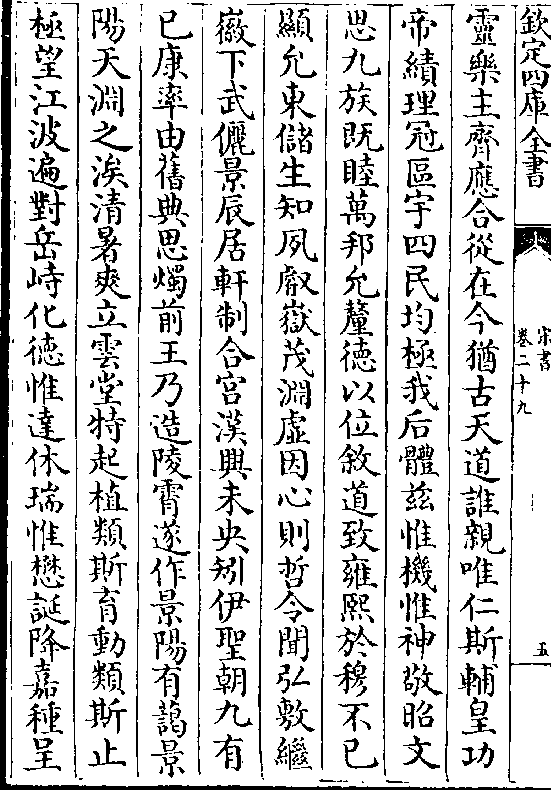 欽定四庫全書
宋書
卷二十九
五
靈樂主齊應合從在今猶古天道誰親唯仁斯輔皇功
帝績理冠區宇四民均極我后體兹惟機惟神敬昭文
思九族既睦萬邦允釐徳以位敘道致雍熙於穆不已
顯允東儲生知夙叡嶽茂淵虛因心則哲令聞弘敷繼
徽下武儷景辰居軒制合宮漢興未央矧伊聖朝九有
已康率由舊典思燭前王乃造陵霄遂作景陽有藹景
陽天淵之涘清暑爽立雲堂特起植類斯育動類斯止
極望江波遍對岳峙化徳惟達休瑞惟懋誕降嘉種呈